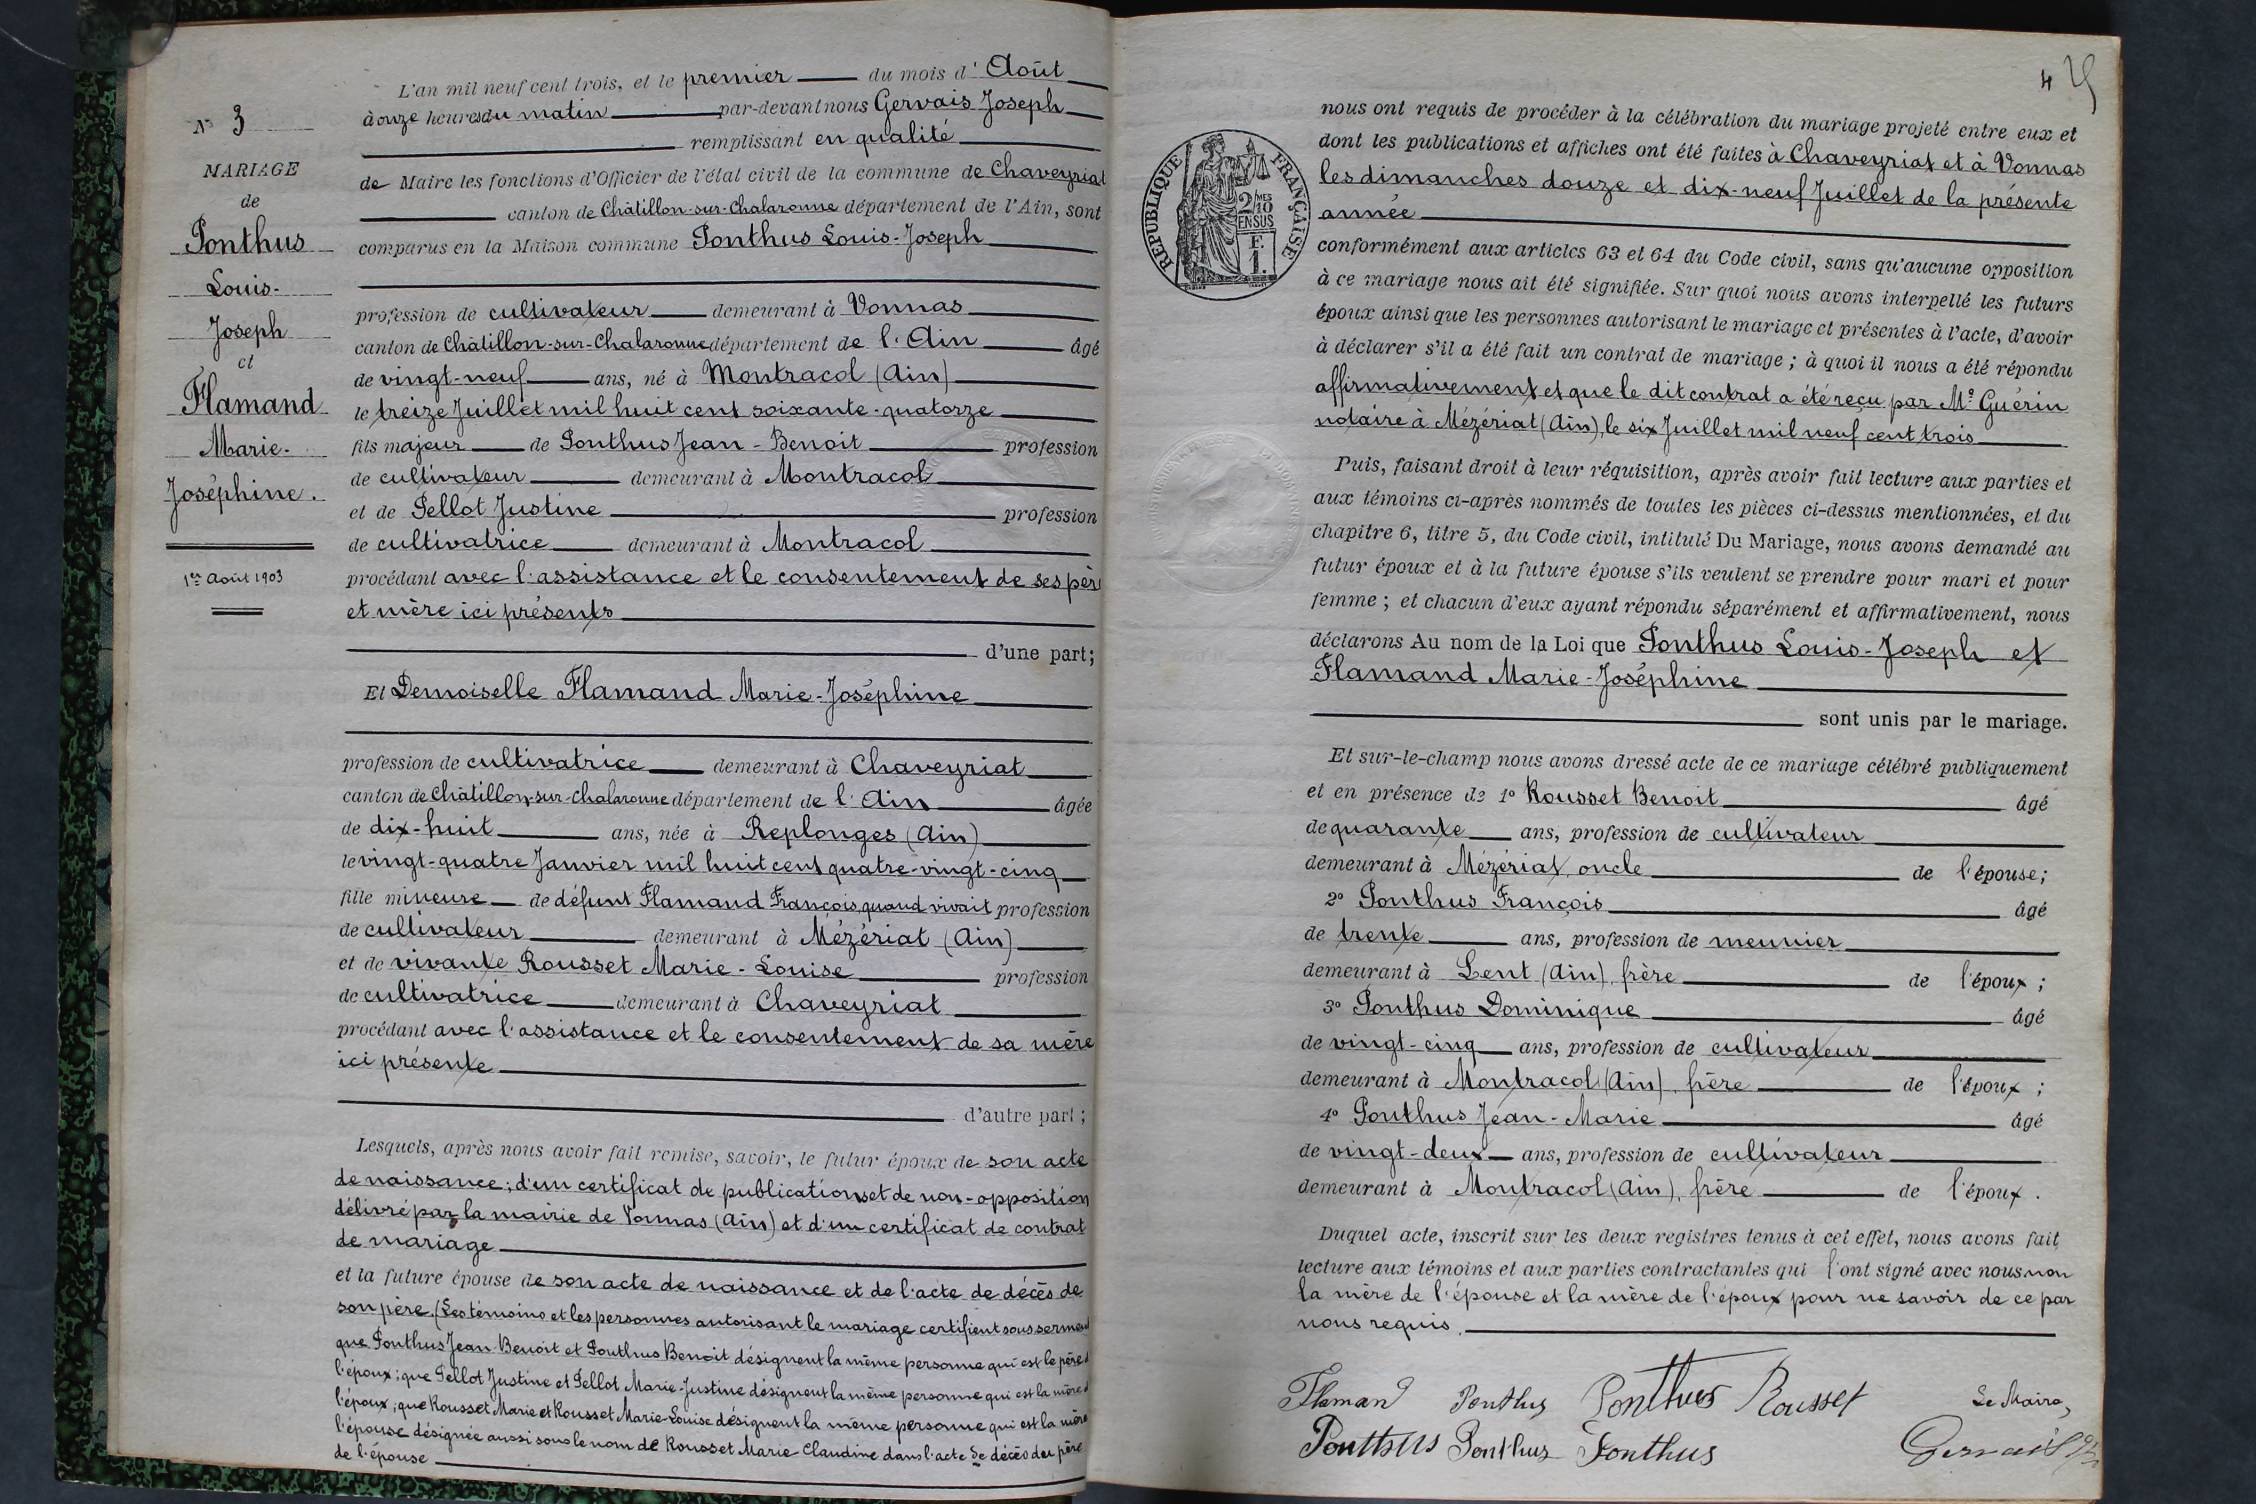 N° 3
MARIAGE
de
Ponthus
Louis-
Joseph
et
Flamand
Marie-
Joséphine.
1er Août 1903
L'an mil neuf cent trois, et le premier du mois d' Août
à onze heures du matin par-devant nous Gervais Joseph
remplissant en qualité
de Maire les fonctions d'Officier de l'état civil de la commune de Chaveyriat
canton de Châtillon-sur-Chalaronne département de l'Ain, sont
comparus en la Maison commune Ponthus Louis-Joseph
profession de cultivateur demeurant à Vonnas
canton de Châtillon-sur-Chalaronne département de l'Ain âgé
de vingt-neuf ans, né à Montracol (Ain)
le treize Juillet mil huit cent soixante-quatorze
fils majeur de Ponthus Jean-Benoit profession
de cultivateur demeurant à Montracol
et de Pellot Justine profession
de cultivatrice demeurant à Montracol
procédant avec l'assistance et le consentement de ses père
et mère ici présents
d'une part;
Et Demoiselle Flamand Marie-Joséphine
profession de cultivatrice demeurant à Chaveyriat
canton de Châtillon-sur-Chalaronne département de l'Ain âgée
de dix-huit ans, née à Replonges (Ain)
le vingt-quatre Janvier mil huit cent quatre-vingt-cinq
fille mineure de défunt Flamand François, quand vivait profession
de cultivateur demeurant à Mézériat (Ain)
et de vivante Rousset Marie-Louise profession
de cultivatrice demeurant à Chaveyriat
procédant avec l'assistance et le consentement de sa mère
ici présente
d'autre part;
Lesquels, après nous avoir fait remise, savoir, le futur époux de son acte
de naissance; d'un certificat de publications et de non-opposition
délivré par la mairie de Vonnas (Ain) et d'un certificat de contrat
de mariage
et la future épouse de son acte de naissance et de l'acte de décès de
son père. (Les témoins et les personnes autorisant le mariage certifient sous serment
que Ponthus Jean-Benoit et Ponthus Benoit désignent la même personne qui est le père d
l'époux; que Pellot Justine et Pellot Marie-Justine désignent la même personne qui est la mère d
l'époux; que Rousset Marie et Rousset Marie-Louise désignent la même personne qui est la mère
l'épouse désignée aussi sous le nom de Rousset Marie-Claudine dans l'acte de décès du père
de l'épouse
4
RÉPUBLIQUE FRANÇAISE
2/10 MES
EN SUS
F.
1.
nous ont requis de procéder à la célébration du mariage projeté entre eux et
dont les publications et affiches ont été faites à Chaveyriat et à Vonnas
les dimanches douze et dix-neuf Juillet de la présente
année
conformément aux articles 63 et 64 du Code civil, sans qu'aucune opposition
à ce mariage nous ait été signifiée. Sur quoi nous avons interpellé les futurs
époux ainsi que les personnes autorisant le mariage et présentes à l'acte, d'avoir
à déclarer s'il a été fait un contrat de mariage; à quoi il nous a été répondu
affirmativement et que le dit contrat a été reçu par Me Guérin
notaire à Mézériat (Ain), le six Juillet mil neuf cent trois
Puis, faisant droit à leur réquisition, après avoir fait lecture aux parties et
aux témoins ci-après nommés de toutes les pièces ci-dessus mentionnées, et du
chapitre 6, titre 5, du Code civil, intitulé Du Mariage, nous avons demandé au
futur époux et à la future épouse s'ils veulent se prendre pour mari et pour
femme; et chacun d'eux ayant répondu séparément et affirmativement, nous
déclarons Au nom de la Loi que Ponthus Louis-Joseph et
Flamand Marie-Joséphine
sont unis par le mariage.
Et sur-le-champ nous avons dressé acte de ce mariage célébré publiquement
et en présence de 1° Rousset Benoit âgé
de quarante ans, profession de cultivateur
demeurant à Mézériat, oncle de l'épouse;
2° Ponthus François âgé
de trente ans, profession de meunier
demeurant à Lent (Ain), frère de l'époux;
3° Ponthus Dominique âgé
de vingt-cinq ans, profession de cultivateur
demeurant à Montracol (Ain), frère de l'époux;
4° Ponthus Jean-Marie âgé
de vingt-deux ans, profession de cultivateur
demeurant à Montracol (Ain), frère de l'époux.
Duquel acte, inscrit sur les deux registres tenus à cet effet, nous avons fait
lecture aux témoins et aux parties contractantes qui l'ont signé avec nous non
la mère de l'épouse et la mère de l'époux pour ne savoir de ce par
nous requis.
Flamand Ponthus Ponthus Rousset Le Maire,
Ponthus Ponthus Ponthus Gervais